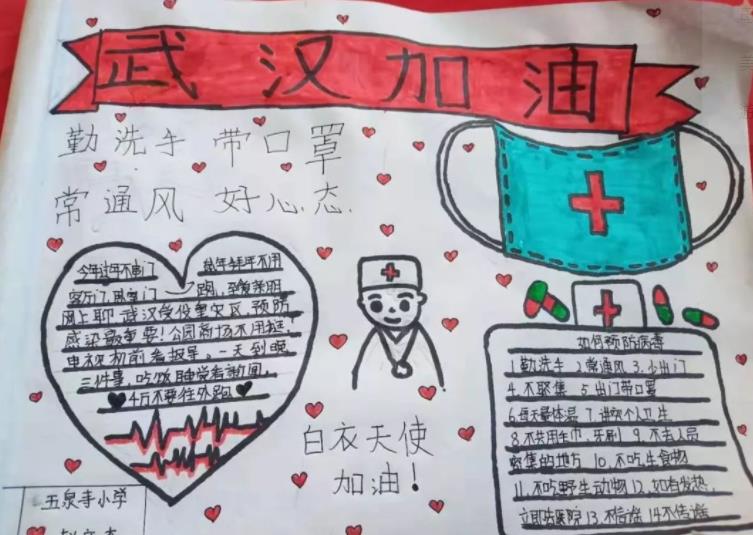 武汉加油
勤洗手 带口罩
常通风 好心态.
今年过年不串门
跑,至爱亲朋
网上聊.武汉受役重灾区,预防
感染最重要!公园商场不用
电视机前看报导.一天到晚
三件事,吃饭睡觉看新闻,
不要往外跑
白衣天使
加油!
如何预防病毒
1勤洗手 2.常通风 3.少出门
4.不聚集 5出门带口罩
6每天量体温 7.讲究个人卫生
8.不共用毛巾,牙刷 9.不去人员
密集的地方 10.不吃生食物
11.不吃野生动物 12.如有发热.
立即去医院 13.不信谣 14不传谣
五泉寺小学